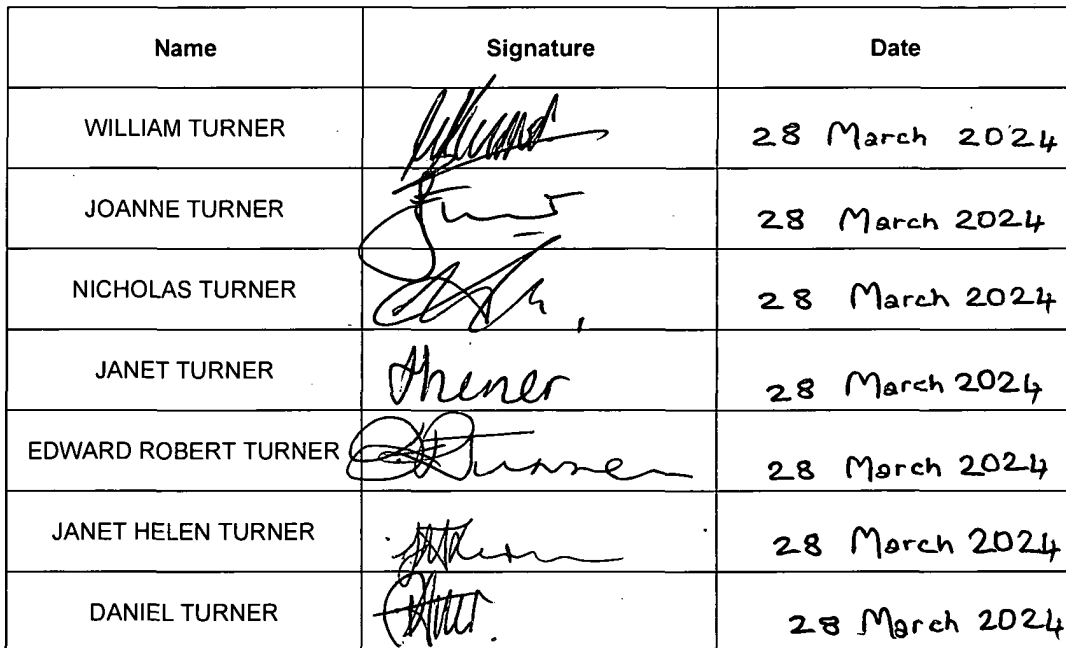 Name Signature Date
WILLIAM TURNER 28 March 2024
JOANNE TURNER 28 March 2024
NICHOLAS TURNER 28 March 2024
JANET TURNER 28 March 2024
EDWARD ROBERT TURNER 28 March 2024
JANET HELEN TURNER 28 March 2024
DANIEL TURNER 28 March 2024